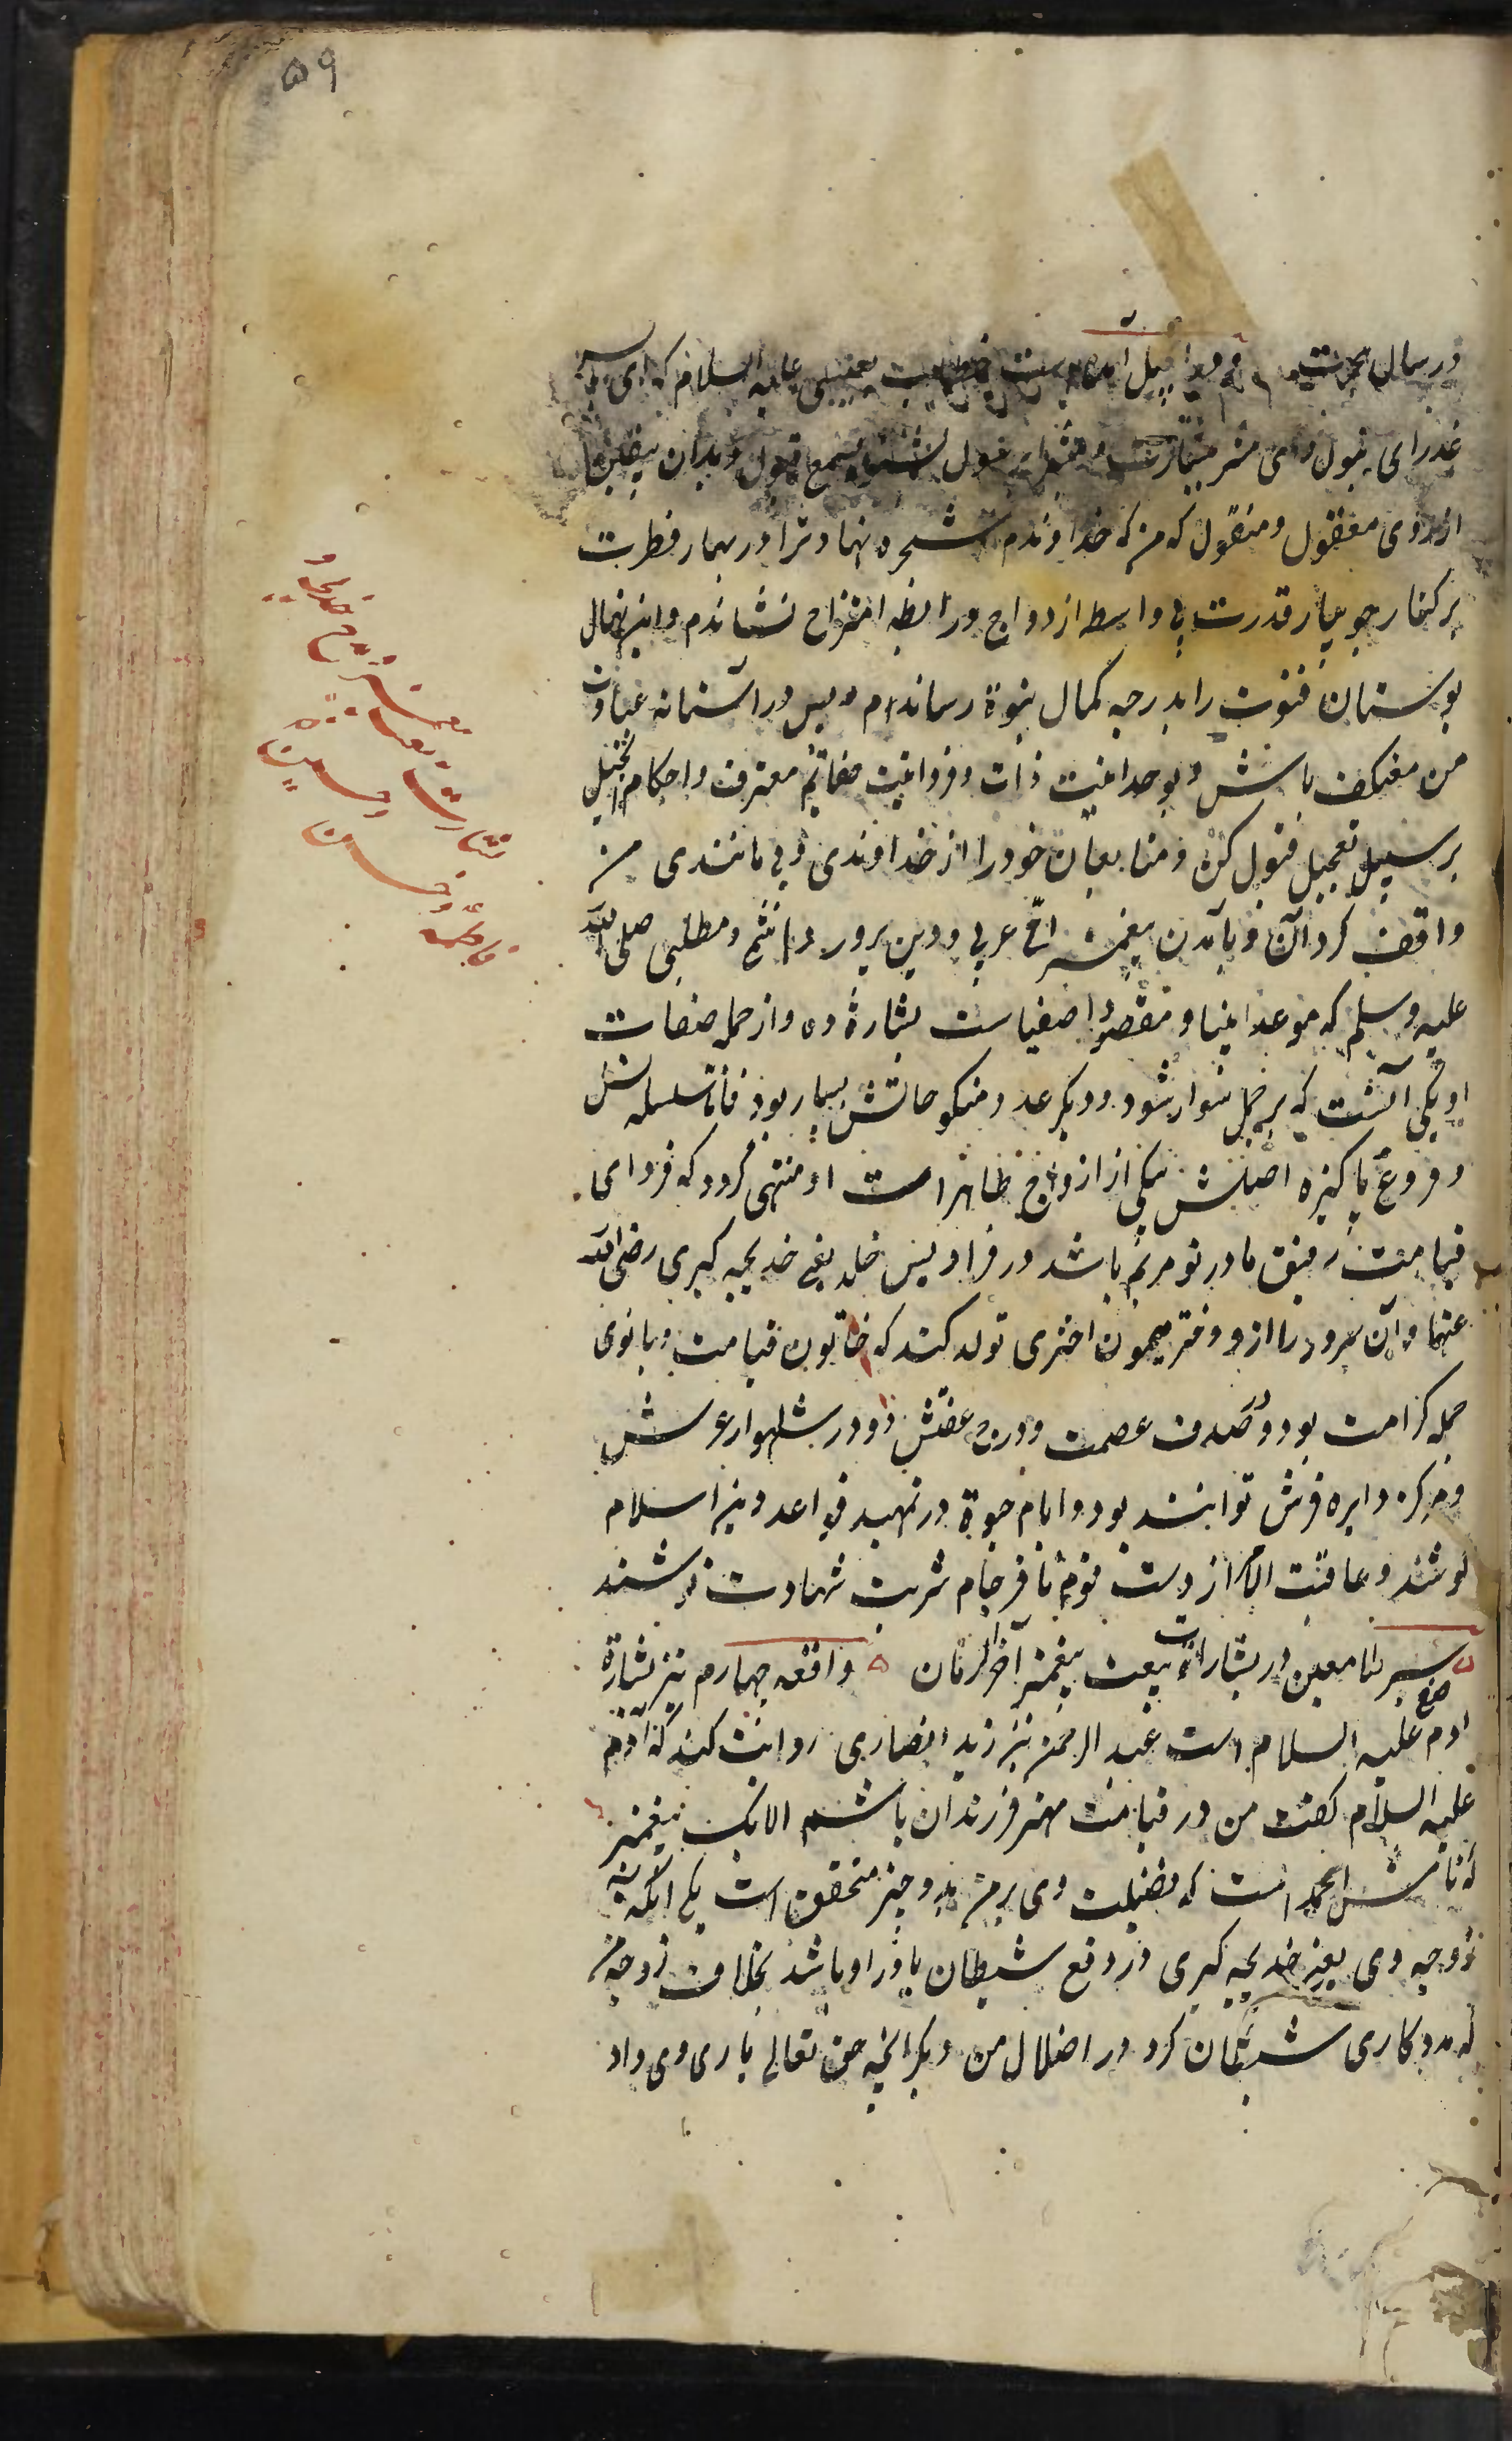 ۵۹
در رسال هجرت در انجیل آمده است خطاب بعیسی علیه السلام که ای پسر
عذرای بتول و ای مبشر بشارت رسول بشنو بسمع قبول و بدان بیقین
از روی معقول و منقول که من که خداوندم شجره نهاد ترا در بهار فطرت
بر کنار جویبار قدرت بی واسطه ازدواج و رابطه امتزاج نشاندم و این نهال
بوستان فتوت را بدرجه کمال نبوة رساندم پس در آستانه عبادت
من معتکف باش و بوحدانیت ذات و فردانیت صفاتم معترف و احکام انجیل
بر سبیل تعجیل قبول کن و متابعان خود را از خداوندی و بی مانندی من
واقف گردان و بآمدن پیغمبر امی عربی و دین پرور هاشمی و مطلبی صلی الله
علیه وسلم که موعد انبیا و مقصود اصفیاست بشارة ده و از جمله صفات
او یکی آنست که بر جمل سوار شود و دیگر عدد منکوحاتش بسیار بود فاما سلسله نسل
و فروع پاکیزه اصلش بیکی از ازواج طاهرات او منتهی گردد که فردای
قیامت رفیق مادر تو مریم باشد در فرادیس خلد یعنی خدیجه کبری رضی الله
عنها و آن سرور را ازو دختر میمون اختری تولد کند که خاتون قیامت و بانوی
جمله کرامت بود و صدف عصمت و درج عفتش دو در شاهوار عرش
و مرکز دایره فرش توانند بود و ایام حیوة در تمهید قواعد دین اسلام
کوشند و عاقبت الامر از دست قوم نافرجام شربت شهادت نوشند
سیر ملا معین در بشارات بعثت پیغمبر آخر الزمان واقعه چهارم نیز بشارة
آدم صفی علیه السلام است عبد الرحمن بن زید انصاری روایت کند که آدم
علیه السلام گفت من در قیامت مهتر فرزندان باشم الا یک پیغمبر
که نامش احمد است که فضیلت وی بر من بدو چیز متحقق است یکی آنکه
زوجه وی یعنی خدیجه کبری در دفع شیطان یاور او باشد بخلاف زوجه من
که مددکاری شیطان کرد در اضلال من دیگر آنکه حق تعالی یاری وی داد
خدیجه و
بشارت
فاطمه و حسن
و حسین